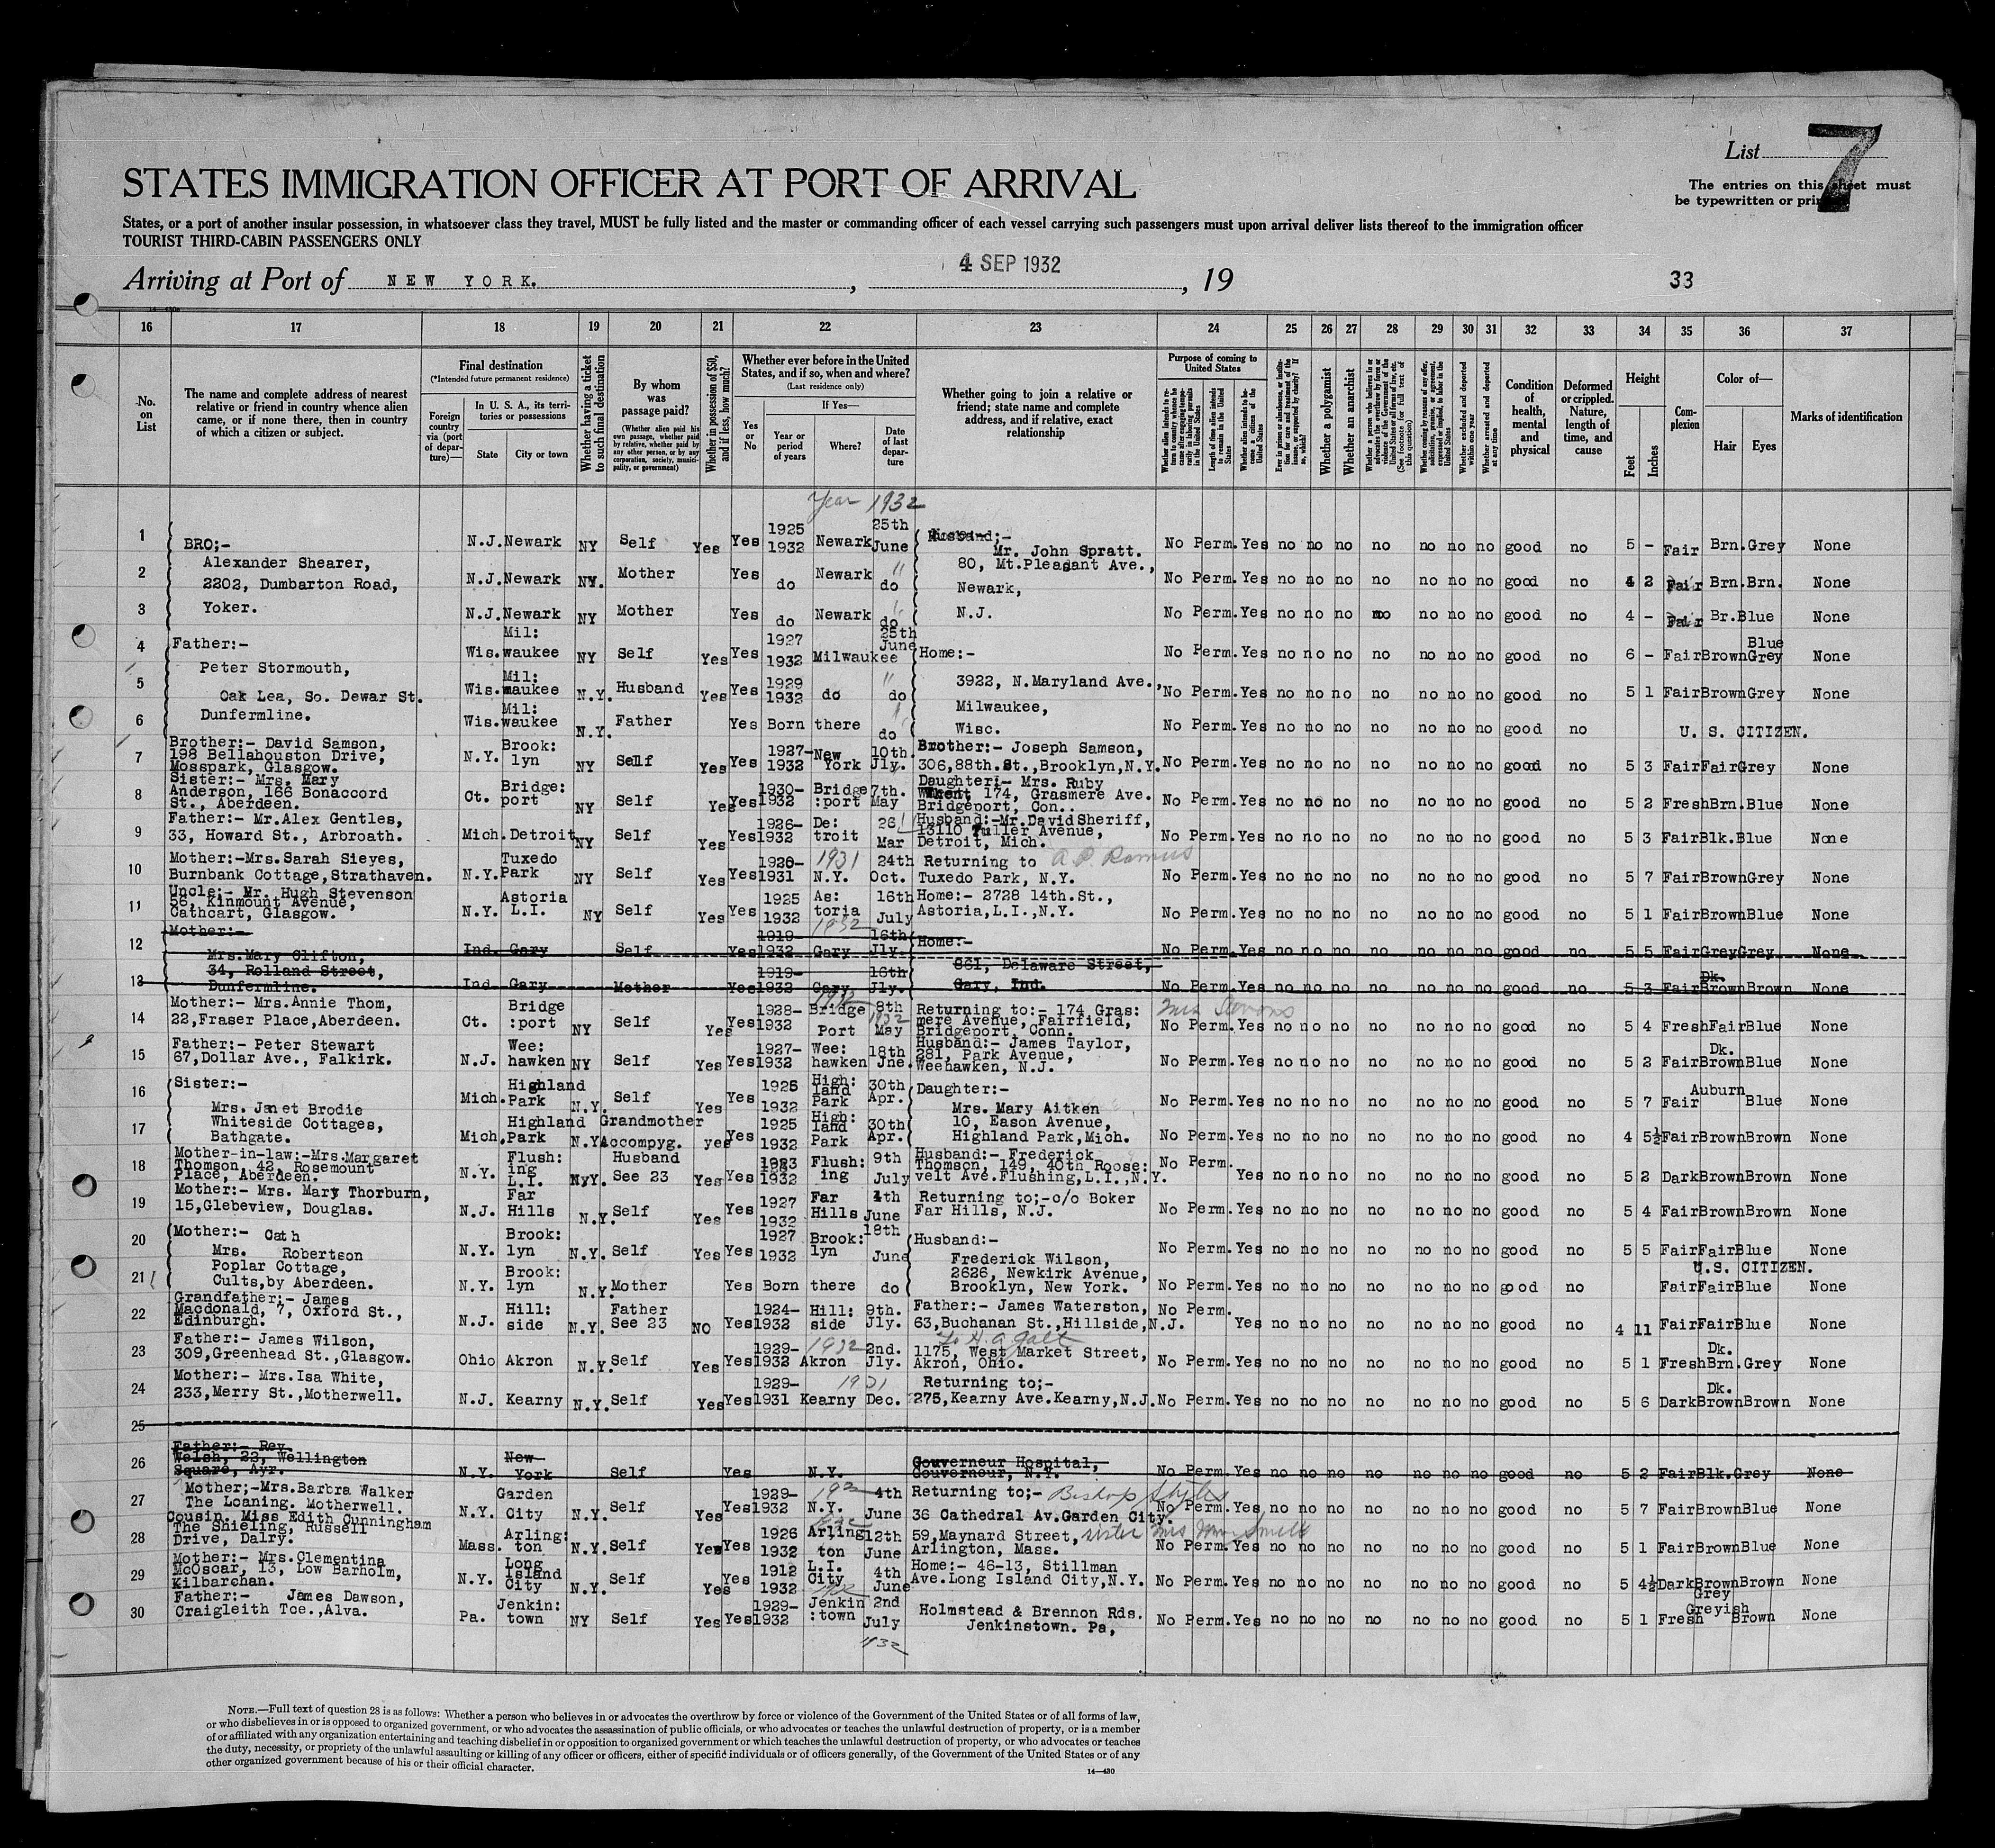 List 7
STATES IMMIGRATION OFFICER AT PORT OF ARRIVAL
The entries on this sheet must
be typewritten or
States, or a port of another insular possession, in whatsoever class they travel, MUST be fully listed and the master or commanding officer of each vessel carrying such passengers must upon arrival deliver lists thereof to the immigration officer
TOURIST THIRD-CABIN PASSENGERS ONLY
Arriving at Port of NEW YORK. , 4 SEP 1932 , 19 33
16 17 18 19 20 21 22 23 24 25 26 27 28 29 30 31 32 33 34 35 36 37
No. on List
The name and complete address of nearest relative or friend in country whence alien came, or if none there, then in country of which a citizen or subject.
Final destination
(*Intended future permanent residence)
Foreign country via (port of departure)—
In U. S. A., its territories or possessions
State City or town
Whether having a ticket to such final destination
By whom was passage paid?
(Whether alien paid his own passage, whether paid by relative, whether paid by any other person, or by any corporation, society, municipality, or government)
Whether in possession of $50, and if less, how much?
Whether ever before in the United States, and if so, when and where?
(Last residence only)
Yes or No
If Yes—
Year or period of years Where? Date of last departure
Whether going to join a relative or friend; state name and complete address, and if relative, exact relationship
Purpose of coming to United States
Whether a polygamist
Whether an anarchist
Whether excluded and deported within one year
Whether arrested and deported at any time
Condition of health, mental and physical
Deformed or crippled. Nature, length of time, and cause
Height
Feet Inches
Complexion
Color of—
Hair Eyes
Marks of identification
Year 1932
1 BRO;- N.J. Newark NY Self Yes Yes 1925 1932 Newark 25th June Husband;- Mr. John Spratt. No Perm. Yes no no no no no no no good no 5 - Fair Brn. Grey None
2 Alexander Shearer, 2202, Dumbarton Road, N.J. Newark NY. Mother Yes do Newark do 80, Mt.Pleasant Ave., Newark, No Perm. Yes no no no no no no no good no 4 2 Fair Brn. Brn. None
3 Yoker. N.J. Newark NY Mother Yes do Newark do N.J. No Perm. Yes no no no no no no no good no 4 - Fair Br. Blue None
4 Father:- Wis. Mil: waukee NY Self Yes Yes 1927 1932 Milwaukee 25th June Home:- No Perm. Yes no no no no no no no good no 6 - Fair Brown Blue Grey None
5 Peter Stormouth, Oak Lea, So. Dewar St. Wis. Mil: waukee N.Y. Husband Yes Yes 1929 1932 do do 3922, N.Maryland Ave., No Perm. Yes no no no no no no no good no 5 1 Fair Brown Grey None
6 Dunfermline. Wis. Mil: waukee N.Y. Father Yes Born there do Milwaukee, Wisc. No Perm. Yes no no no no no no no good no U. S. CITIZEN.
7 Brother:- David Samson, 198 Bellahouston Drive, Mosspark, Glasgow. N.Y. Brook: lyn NY Self Yes Yes 1927- 1932 New York 10th. Jly. Brother:- Joseph Samson, 306,88th.St.,Brooklyn,N.Y. No Perm. Yes no no no no no no no good no 5 3 Fair Fair Grey None
8 Sister:- Mrs. Mary Anderson, 166 Bonaccord St., Aberdeen. Ct. Bridge: port NY Self Yes Yes 1930- 1932 Bridge :port 7th. May Daughter;- Mrs. Ruby 174, Grasmere Ave. Bridgeport, Con.. No Perm. Yes no no no no no no no good no 5 2 Fresh Brn. Blue None
9 Father:- Mr.Alex Gentles, 33, Howard St., Arbroath. Mich. Detroit NY Self Yes Yes 1926- 1932 De: troit 26 Mar Husband:-Mr.David Sheriff, 13110 Tuller Avenue, Detroit, Mich. No Perm. Yes no no no no no no no good no 5 3 Fair Blk. Blue None
10 Mother:-Mrs.Sarah Sieyes, Burnbank Cottage,Strathaven. N.Y. Tuxedo Park NY Self Yes Yes 1931 1931 N.Y. 24th Oct. Returning to Tuxedo Park, N.Y. No Perm. Yes no no no no no no no good no 5 7 Fair Brown Grey None
11 Uncle:- Mr. Hugh Stevenson 56, Kinmount Avenue, Cathcart, Glasgow. N.Y. Astoria L.I. NY Self Yes Yes 1925 1932 As: toria 16th July Home:- 2728 14th.St., Astoria,L.I.,N.Y. No Perm. Yes no no no no no no no good no 5 1 Fair Brown Blue None
12 Mother:- Mrs.Mary Clifton, Ind. Gary Self Yes 1919- 1932 1932 Gary 16th Jly. Home:- No Perm. Yes no no no no no no no good no 5 5 Fair Grey Grey None
13 34, Rolland Street, Dunfermline. Ind. Gary Mother Yes 1919- 1932 Gary 16th Jly. 861, Delaware Street, Gary, Ind. No Perm. Yes no no no no no no no good no 5 3 Fair Dk. Brown Brown None
14 Mother:- Mrs.Annie Thom, 22,Fraser Place,Aberdeen. Ct. Bridge :port NY Self Yes Yes 1928- 1932 1932 Bridge Port 8th 1932 May Returning to:- 174 Gras: mere Avenue, Fairfield, Bridgeport, Conn. No Perm. Yes no no no no no no no good no 5 4 Fresh Fair Blue None
15 Father:- Peter Stewart 67,Dollar Ave., Falkirk. N.J. Wee: hawken NY Self Yes Yes 1927- 1932 Wee: hawken 18th Jne. Husband:- James Taylor, 281, Park Avenue, Weehawken, N.J. No Perm. Yes no no no no no no no good no 5 2 Fair Dk. Brown Blue None
16 Sister:- Mrs. Janet Brodie Mich. Highland Park N.Y. Self Yes Yes 1925 1932 High: land Park 30th Apr. Daughter:- Mrs. Mary Aitken No Perm. Yes no no no no no no no good no 5 7 Fair Auburn Blue None
17 Whiteside Cottages, Bathgate. Mich. Highland Park N.Y. Grandmother Accompyg. yes Yes 1925 1932 High: land Park 30th Apr. 10, Eason Avenue, Highland Park,Mich. No Perm. Yes no no no no no no no good no 4 5½ Fair Brown Brown None
18 Mother-in-law:-Mrs.Margaret Thomson, 42, Rosemount Place, Aberdeen. N.Y. Flush: ing L.I. N.Y. Husband See 23 Yes Yes 1932 Flush: ing 9th July Husband:- Frederick Thomson, 149, 40th Roose: velt Ave.Flushing,L.I.,N.Y. No Perm. Yes no no no no no no no good no 5 2 Dark Brown Brown None
19 Mother:- Mrs. Mary Thorburn, 15,Glebeview, Douglas. N.J. Far Hills N.Y. Self Yes Yes 1927 1932 Far Hills 4th June Returning to;-c/o Boker Far Hills, N.J. No Perm. Yes no no no no no no no good no 5 4 Fair Brown Brown None
20 Mother:- Cath Mrs. Robertson N.Y. Brook: lyn N.Y. Self Yes Yes 1927 1932 Brook: lyn 18th June Husband:- Frederick Wilson, No Perm. Yes no no no no no no no good no 5 5 Fair Fair Blue None
21 Poplar Cottage, Cults,by Aberdeen. N.Y. Brook: lyn N.Y. Mother Yes Born there do 2626, Newkirk Avenue, Brooklyn, New York. No Perm. Yes no no no no no no no good no U.S. CITIZEN. Fair Fair Blue None
22 Grandfather:- James Macdonald, 7, Oxford St., Edinburgh. N.J. Hill: side N.Y. Father See 23 NO Yes 1924- 1932 Hill: side 9th. Jly. Father:- James Waterston, 63,Buchanan St.,Hillside,N.J. No Perm. Yes no no no no no no no good no 4 11 Fair Fair Blue None
23 Father:- James Wilson, 309,Greenhead St.,Glasgow. Ohio Akron N.Y. Self Yes Yes 1929- 1932 1932 Akron 2nd. Jly. 1175, West Market Street, Akron, Ohio. No Perm. Yes no no no no no no no good no 5 1 Fresh Dk. Brn. Grey None
24 Mother:- Mrs.Isa White, 233,Merry St.,Motherwell. N.J. Kearny N.Y. Self Yes Yes 1929- 1931 1931 Kearny Dec. Returning to;- 275,Kearny Ave.Kearny,N.J. No Perm. Yes no no no no no no no good no 5 6 Dark Dk. Brown Brown None
25
26 Father:- Rev. Welsh, 23, Wellington Square, Ayr. N.Y. New York Self Yes N.Y. Gouverneur Hospital, Gouverneur, N.Y. No Perm. Yes no no no no no no no good no 5 2 Fair Blk. Grey None
27 Mother;-Mrs.Barbra Walker The Loaning. Motherwell. N.Y. Garden City N.Y. Self Yes Yes 1929- 1932 N.Y. 4th June Returning to;- Bishop 36 Cathedral Av.Garden City. No Perm. Yes no no no no no no no good no 5 7 Fair Brown Blue None
28 Cousin. Miss Edith Cunningham The Shieling, Russell Drive, Dalry. Mass. Arling: ton N.Y. Self Yes Yes 1926 1932 Arling ton 12th June 59,Maynard Street, sister Mrs Arlington, Mass. No Perm. Yes no no no no no no no good no 5 1 Fair Brown Blue None
29 Mother:- Mrs.Clementina McOscar, 13, Low Barholm, Kilbarchan. N.Y. Long Island City N.Y. Self Yes Yes 1912 1932 L.I. City 4th June Home:- 46-13, Stillman Ave.Long Island City,N.Y. No Perm. Yes no no no no no no no good no 5 4½ Dark Brown Brown None
30 Father:- James Dawson, Craigleith Tce.,Alva. Pa. Jenkin: town NY Self Yes Yes 1929- 1932 Jenkin :town 2nd July 1932 Holmstead & Brennon Rds. Jenkinstown. Pa, No Perm. Yes no no no no no no no good no 5 1 Fresh Grey Greyish Brown None
NOTE.—Full text of question 28 is as follows: Whether a person who believes in or advocates the overthrow by force or violence of the Government of the United States or of all forms of law,
or who disbelieves in or is opposed to organized government, or who advocates the assassination of public officials, or who advocates or teaches the unlawful destruction of property, or is a member
of or affiliated with any organization entertaining and teaching disbelief in or opposition to organized government or which teaches the unlawful destruction of property, or who advocates or teaches
the duty, necessity, or propriety of the unlawful assaulting or killing of any officer or officers, either of specific individuals or of officers generally, of the Government of the United States or of any
other organized government because of his or their official character.
14—430